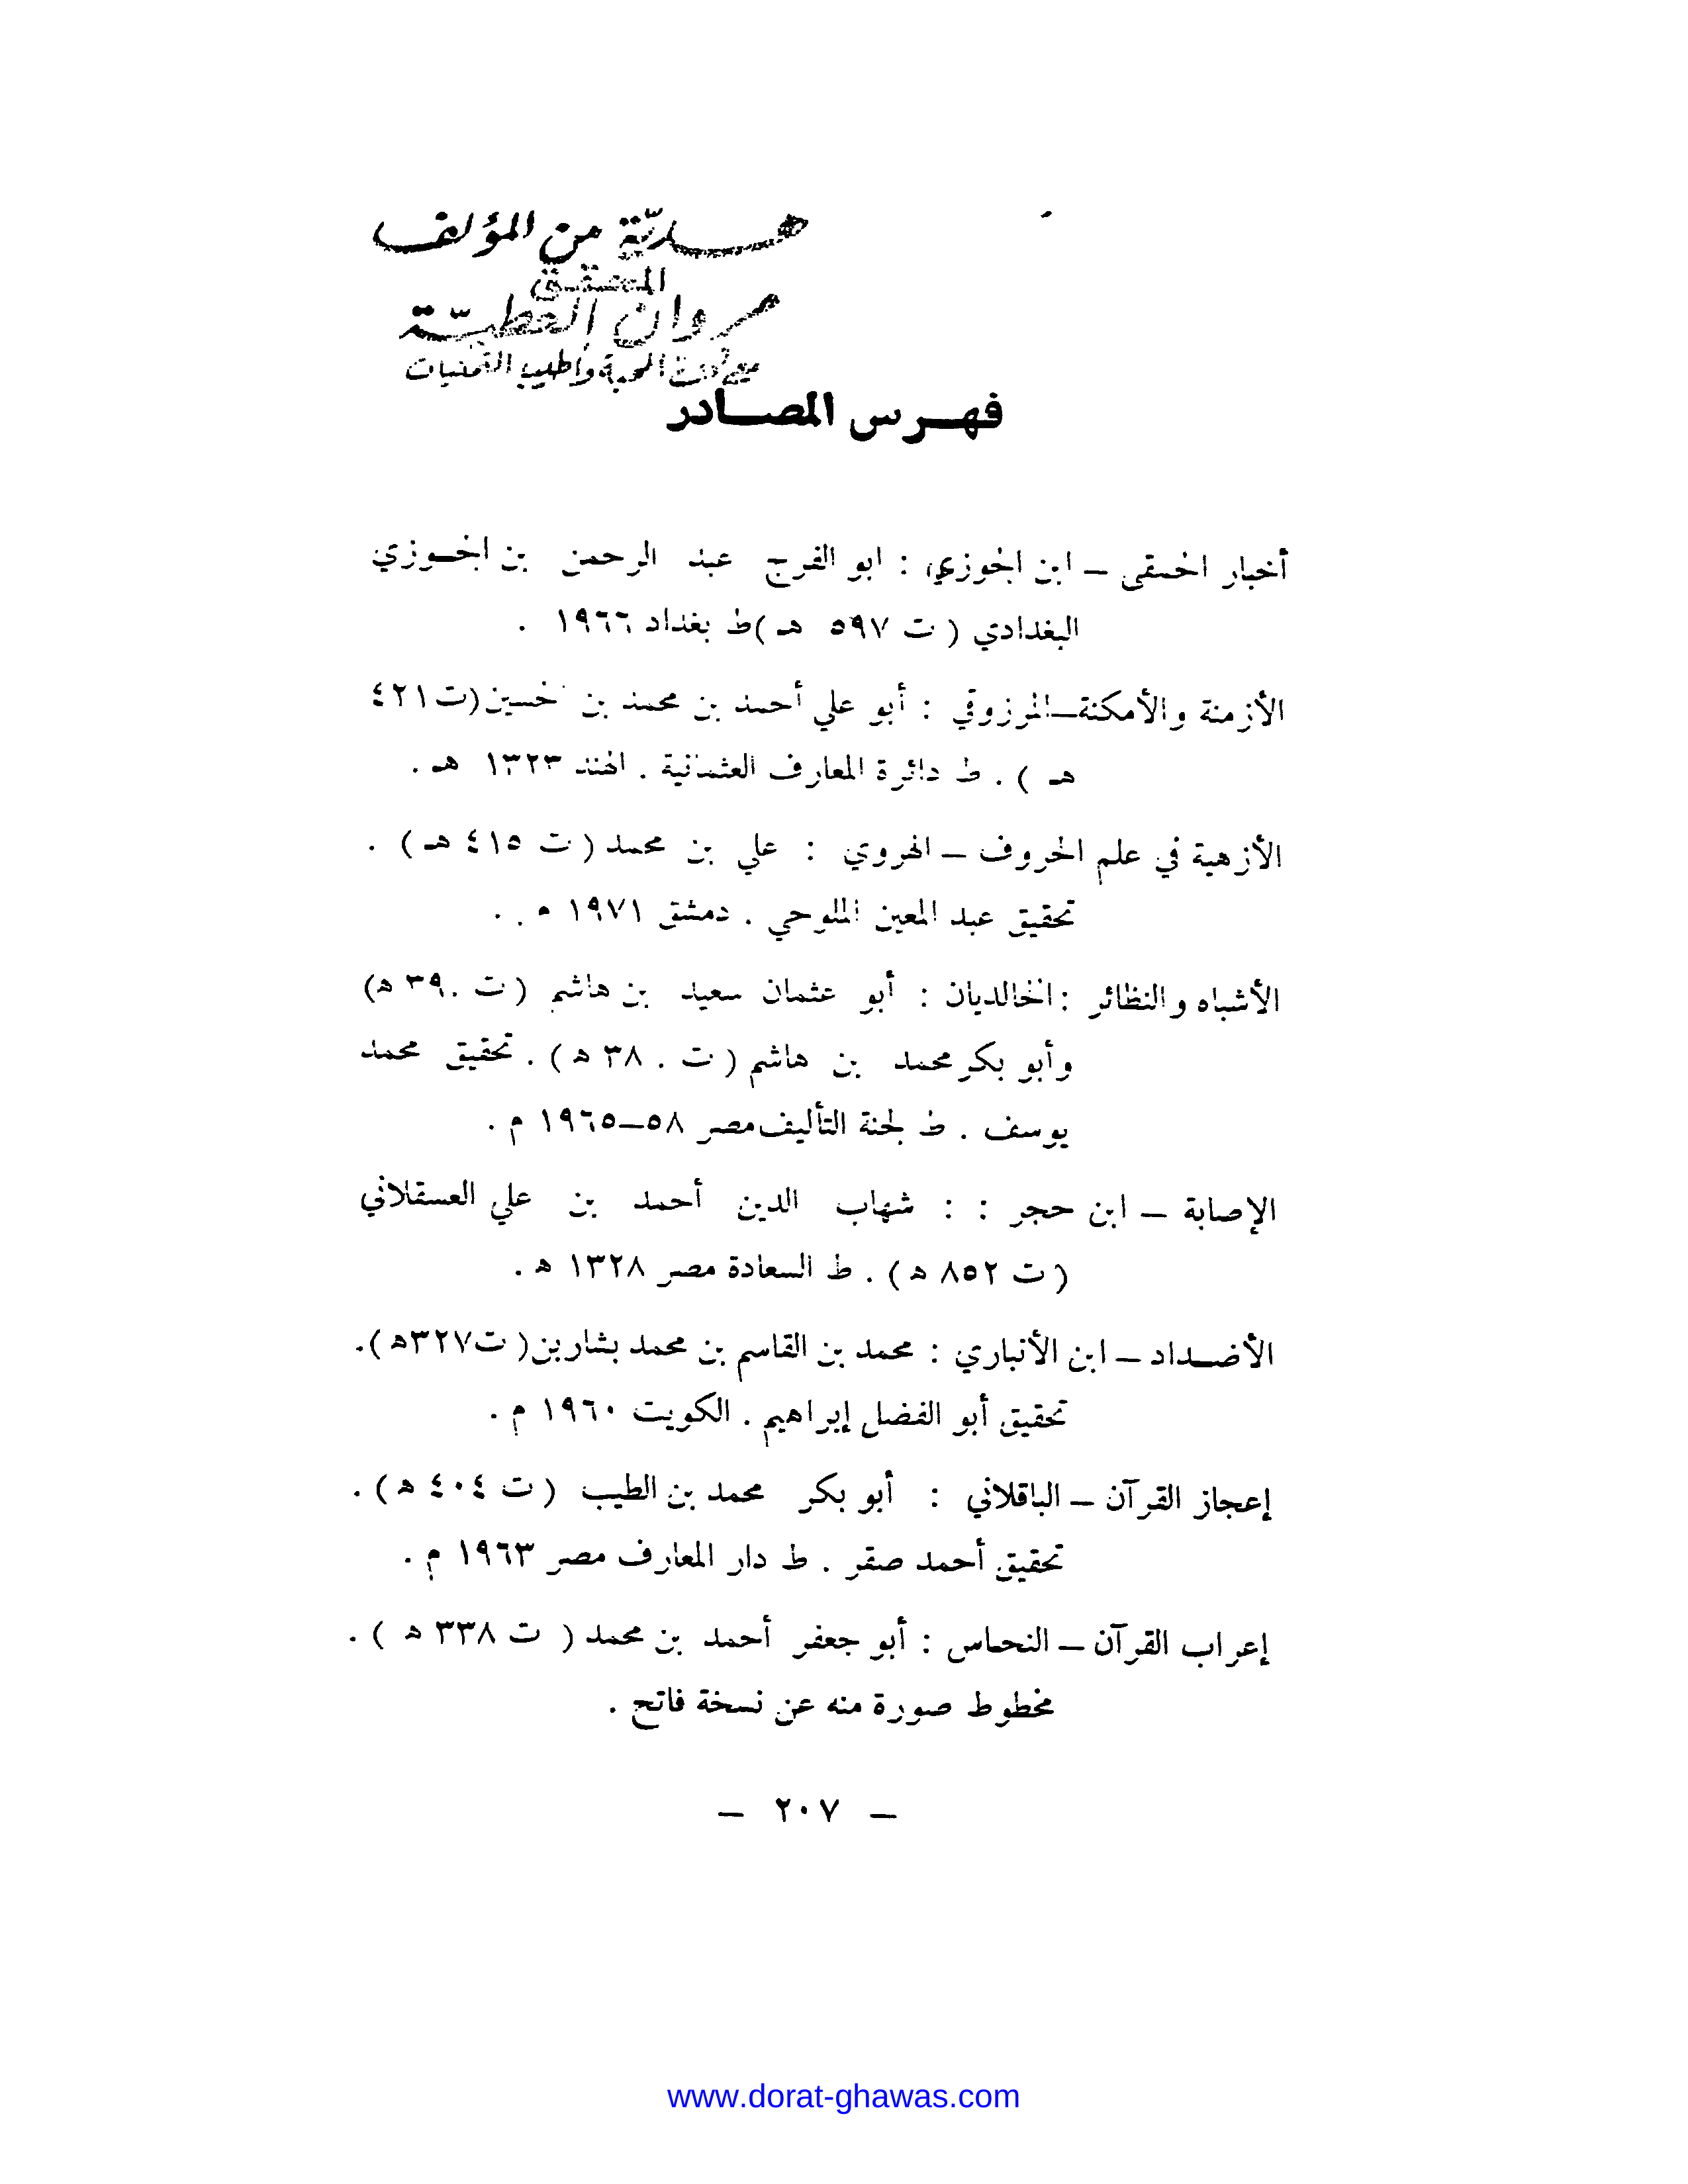 هـديّة من المؤلف
المحقق
مروان العطيّة
مع المحبة وأطيب التمنيات
فهـرس المصـادر
أخبار الحمقى – ابن الجوزي : ابو الفرج عبد الرحمن بن الجـوزي
البغدادي ( ت ٥٩٧ هـ )ط بغداد ١٩٦٦ .
الأزمنة والأمكنة–المرزوقي : أبو علي أحمد بن محمد بن الحسين(ت ٤٢١
هـ ) . ط دائرة المعارف العثمانية . الهند ١٣٢٣ هـ .
الأزهية في علم الحروف – الهروي : علي بن محمد ( ت ٤١٥ هـ ) .
تحقيق عبد المعين الملوحي . دمشق ١٩٧١ م . .
الأشباه والنظائر : الخالديان : أبو عثمان سعيد بن هاشم ( ت ٣٩٠ ه)
وأبو بكر محمد بن هاشم ( ت ٣٨٠ ه ) . تحقيق محمد
يوسف . ط لجنة التأليف مصر ٥٨–١٩٦٥ م .
الإصابة – ابن حجر : : شهاب الدين أحمد بن علي العسقلاني
( ت ٨٥٢ ه ) . ط السعادة مصر ١٣٢٨ ه .
الأضـداد – ابن الأنباري : محمد بن القاسم بن محمد بشاربن( ت٣٢٧ه ).
تحقيق أبو الفضل إبراهيم . الكويت ١٩٦٠ م .
إعجاز القرآن – الباقلاني : أبو بكر محمد بن الطيب ( ت ٤٠٤ ه ) .
تحقيق أحمد صقر . ط دار المعارف مصر ١٩٦٣ م .
إعراب القرآن – النحاس : أبو جعفر أحمد بن محمد ( ت ٣٣٨ ه ) .
مخطوط صورة منه عن نسخة فاتح .
– ٢٠٧ –
www.dorat-ghawas.com